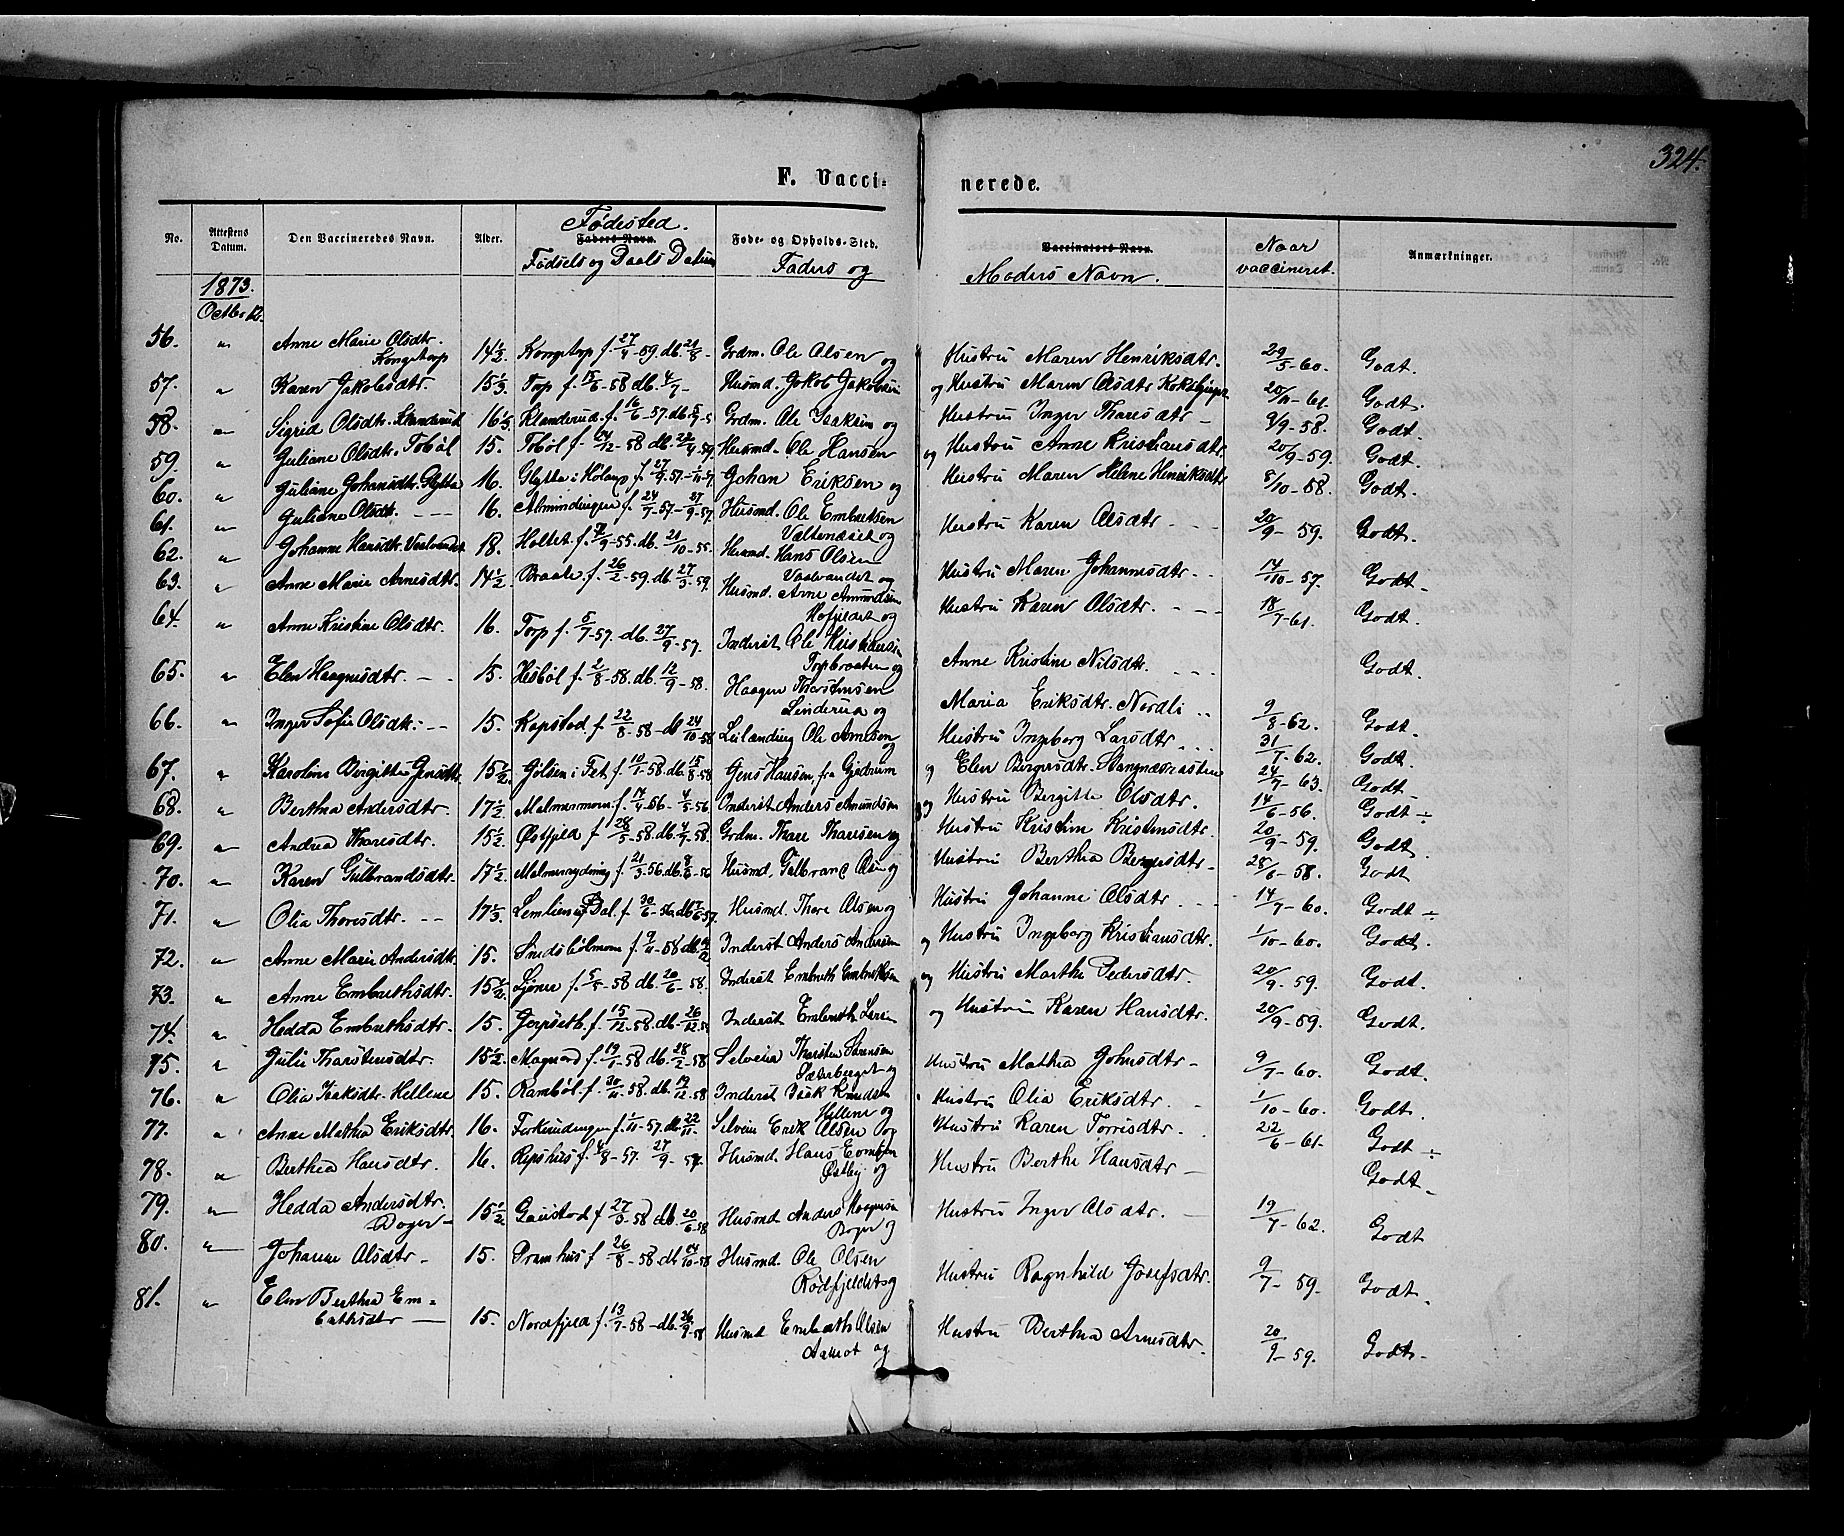 324.
F. Vacci- nerede.
No. Attestens Datum. Den Vaccineredes Navn. Alder. Fødested. Faders Navn. Fødsels og Daabs Datum Føde- og Opholds-Sted. Faders og Vaccinators Navn. Moders Navn. Naar vaccineret. Anmærkninger.
1873.
Octbr. 12.
56. " Anne Marie Olsdtr. Kongstorp 14 1/2. Kongstorp f. 27/4-59 db. 21/8- Grdm. Ole Olsen og Hustru Maren Henriksdtr. 29/5-60. Godt.
57. " Karen Jakobsdtr. 15 1/3. Torp f. 15/6-58 db. 4/7- Husmd. Jokob Jakobsen og Hustru Maren Olsdtr 20/11-61. Godt.
58. " Sigrid Olsdtr. Klanderud 16 1/3. Klanderud f. 16/6-57. db. Grdm. Ole Isaksen og Hustru Inger Tharesdtr - 9/9-58. Godt.
59. " Juliane Olsdtr. Tobøl 15. Tobøl f. 24/12-58 db. 24/4-59 Husmd. Ole Hansen og Hustru Anne Kristiansdtr 20/9-59. Godt.
60. " Juliane Johansdtr. Flytta 16. Johan Eriksen og Hustru Maren Helene Henriksdtr 8/10-58. Godt.
61. " Juliane Olsdtr. - - - 16. Almindingen f. 24/7-57 - 27/9-57. Husmd. Ole Embretsen og Hustru Karen Olsdtr - - - 20/9-59. Godt.
62. " Johanne Hansdtr. 18. Holtet f. 7/9-55. db. 21/10-55. Husmd. Hans Olsen og Hustru Maren Johannesdtr - - 14/10-57. Godt.
63. " Anne Marie Arnesdtr. 14 1/2. Braate f. 26/2-59. db. 27/3-59. Husmd. Arne Amundsen og Hustru Karen Olsdtr. - - - 18/7-61. Godt.
64. " Anne Kristine Olsdtr. 16. Torp f. 5/7-57. db. 27/9-57. Inderst Ole Kristiansen Torpbraaten og Anne Kristine Nilsdtr. - - - Godt.
65. " Elen Haagensdtr. - - 15. Hesbøl f. 2/8-58. db. 12/9-58. Haagen Thorstensen og Maria Eriksdtr. Nordli 9/8-62. Godt.
66. " Inger Sofie Olsdtr. - - 15. Kopstad f. 22/8-58 - db. 24/10-58 Leilænding Ole Arnesen og Hustru Ingeborg Larsdtr - - - 31/7-62. Godt.
67. " Karoline Birgitte Jensdtr. 15 1/2. Jølsen i Fet. f. 10/1-58 db. 15/8-58 Jens Hansen, fra Gjedrum og Elen Bergersdtr. 24/7-63. Godt
68. " Berthea Andersdtr. 17 1/2. Malmermoen f. 17/4-56 - 4/5-56 Inderst Anders Amundsen og Hustru Bergitte Olsdtr. 14/6-56. Godt ÷
69. " Andrea Tharesdtr. 15 1/2. Østfjeld f. 28/5-58. db. 4/7-58. Grdm. Thare Tharesen og Hustru Kristine Kristensdtr. 20/9-59. Godt.
70. " Karen Gulbrandsdtr. 17 1/2. Malmerrydning f. 21/3-56 db. 8/6-56 Husmd. Gulbrand Olsen og Hustru Berthea Bergersdtr - 28/6-58. Godt
71. " Olia Thoresdtr. - - 17 1/3. Husmd. Thore Olsen og Hustru Johanne Olsdtr - - - 14/7-60. Godt ÷
72. " Anne Marie Andersdtr. 15. f. 9/11-58 db. Inderst Anders Andersen og Hustru Ingeborg Kristiansdtr. 1/10-60. Godt.
73. " Anne Embrethsdtr. 15 1/2. Sjoner f. 5/5-58 db. 20/6-58. Inderst Embreth Embrethsen og Hustru Marthe Pedersdtr. 20/9-59. Godt.
74. " Hedda Embrethsdtr. 15. Jorpseth. f. 15/12-58. db. 26/12-58 Inderst Embreth Larsen og Hustru Karen Hansdtr. 20/9-59. Godt.
75. " Julie Tharstensdtr. 15 1/2. Magnord f. 19/1-58 db. 28/2-58 Selveier Tharsten Sørensen Sæterberget og Hustru Mathea Johnsdtr - 9/7-60. Godt.
76. " Olia Isaksdtr. Hellene 15. Rambøl f. 30/11-58. db. 19/12-58 Inderst Isak Knudsen Hellene og Hustru Olia Eriksdtr. - 1/10-60. Godt.
77. " Anne Mathea Eriksdtr. 16. f. 1/11-57. db. 22/11. Selveier Erik Olsen og Hustru Karen Torrisdtr. - 22/6-61. Godt ÷
78. " Berthea Hansdtr. 16. Ripshus f. 4/8-57. 27/9-57. Husmd. Hans Østby og Hustru Berthe Hansdtr - Godt -
79. " Hedda Andersdtr. Boger - 15 1/2. Gaustad f. 27/3-58 db. 20/6-58 Husmd Anders Haagensen Boger og Hustru Inger Olsdtr. - 19/7-62. Godt
80. " Johanne Olsdtr - 15. Pramhus f. 26/8-58. db. 24/10-58 Husmd. Ole Olsen Rødfjeldet og Hustru Ragnhild Josefsdtr. 9/7-59. Godt.
81. " Elen Berthea Embrethsdtr - 15. Nordfjeld f. 13/7-58 - db. 26/9-58 Husmd Embreth Olsen Aamot og Hustru Berthea Arnesdtr. 20/9-59. Godt -